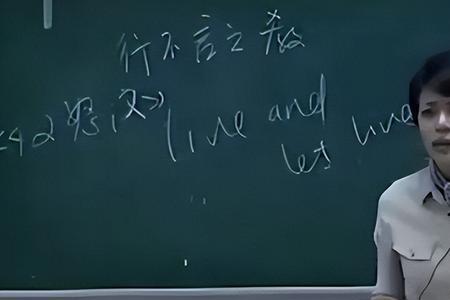 行不言之教
42好汉》 live and
let live